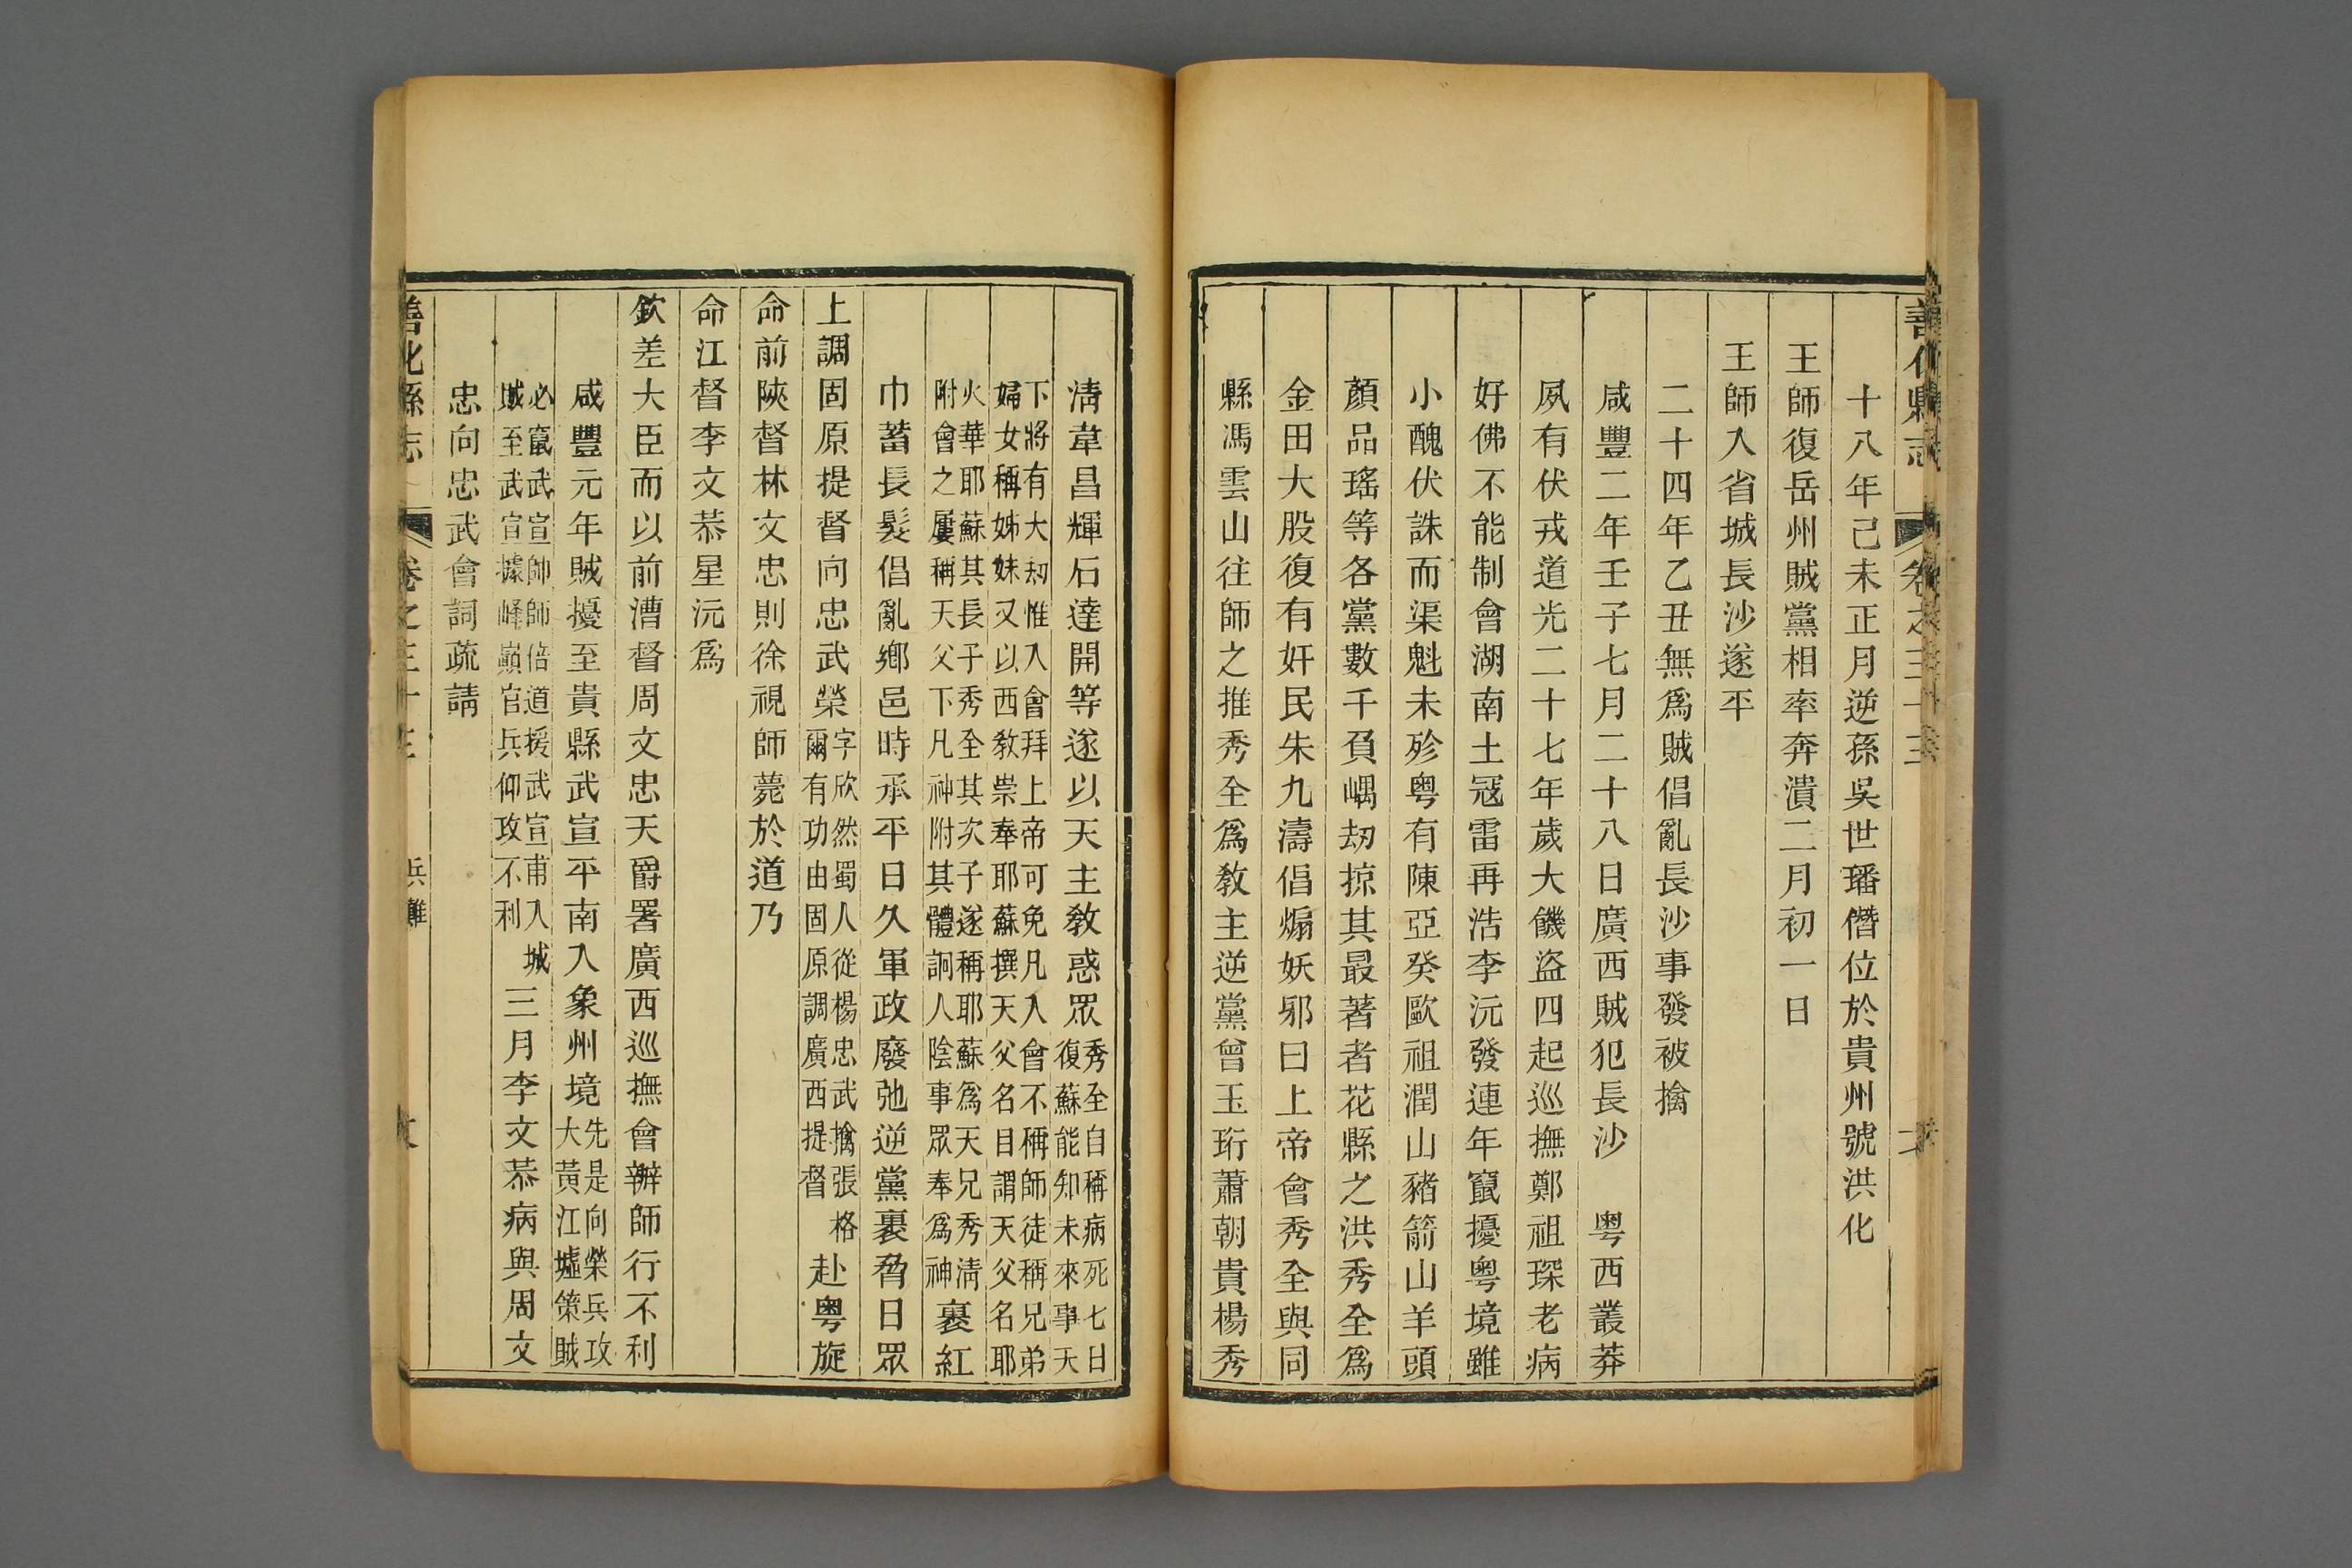 善化縣志 卷之三十三
十八年己未正月逆孫吳世璠僭位於貴州號洪化
王師復岳州賊黨相率奔潰二月初一日
王師入省城長沙遂平
二十四年乙丑無爲賊倡亂長沙事發被擒
咸豐二年壬子七月二十八日廣西賊犯長沙 粵西叢莽
夙有伏戎道光二十七年歲大饑盜四起巡撫鄭祖琛老病
好佛不能制會湖南土寇雷再浩李沅發連年竄擾粵境雖
小醜伏誅而渠魁未殄粵有陳亞癸歐祖潤山豬箭山羊頭
顏品瑤等各黨數千負嵎刼掠其最著者花縣之洪秀全爲
金田大股復有奸民朱九濤倡煽妖邪曰上帝會秀全與同
縣馮雲山往師之推秀全爲敎主逆黨曾玉珩蕭朝貴楊秀
淸韋昌輝石達開等遂以天主敎惑眾
秀全自稱病死七日
復蘇能知未來事天
下將有大刼惟入會拜上帝可免凡入會不稱師徒稱兄弟
婦女稱姊妹又以西敎崇奉耶蘇撰天父名目謂天父名耶
火華耶蘇其長子秀全其次子遂稱耶蘇爲天兄秀淸
附會之屢稱天父下凡神附其體詗人陰事眾奉爲神
裹紅
巾蓄長髮倡亂鄉邑時承平日久軍政廢弛逆黨裹脅日眾
上調固原提督向忠武榮
字欣然蜀人從楊忠武擒張格
爾有功由固原調廣西提督
赴粵旋
命前陝督林文忠則徐視師薨於道乃
命江督李文恭星沅爲
欽差大臣而以前漕督周文忠天爵署廣西巡撫會辦師行不利
咸豐元年賊擾至貴縣武宣平南入象州境
先是向榮兵攻
大黃江墟策賊
必竄武宣帥師倍道援武宣甫入城
賊至武宣據峰巔官兵仰攻不利
三月李文恭病與周文
忠向忠武會詞疏請
善化縣志 卷之三十三 兵難